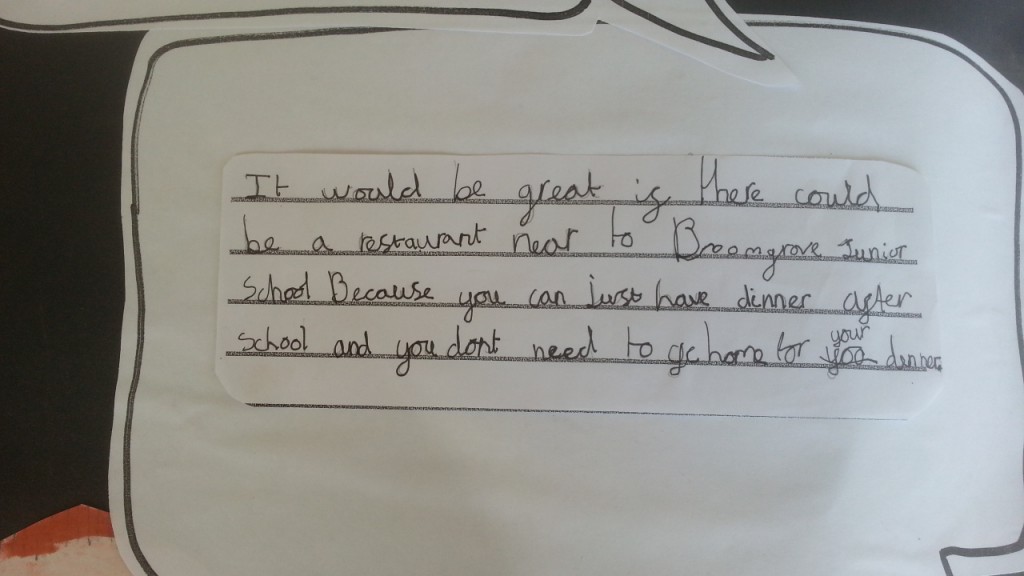 It would be great if there could
be a restaurant near to Broomgrove Junior
School Because you can just have dinner after
school and you dont need to go home for your you dinner